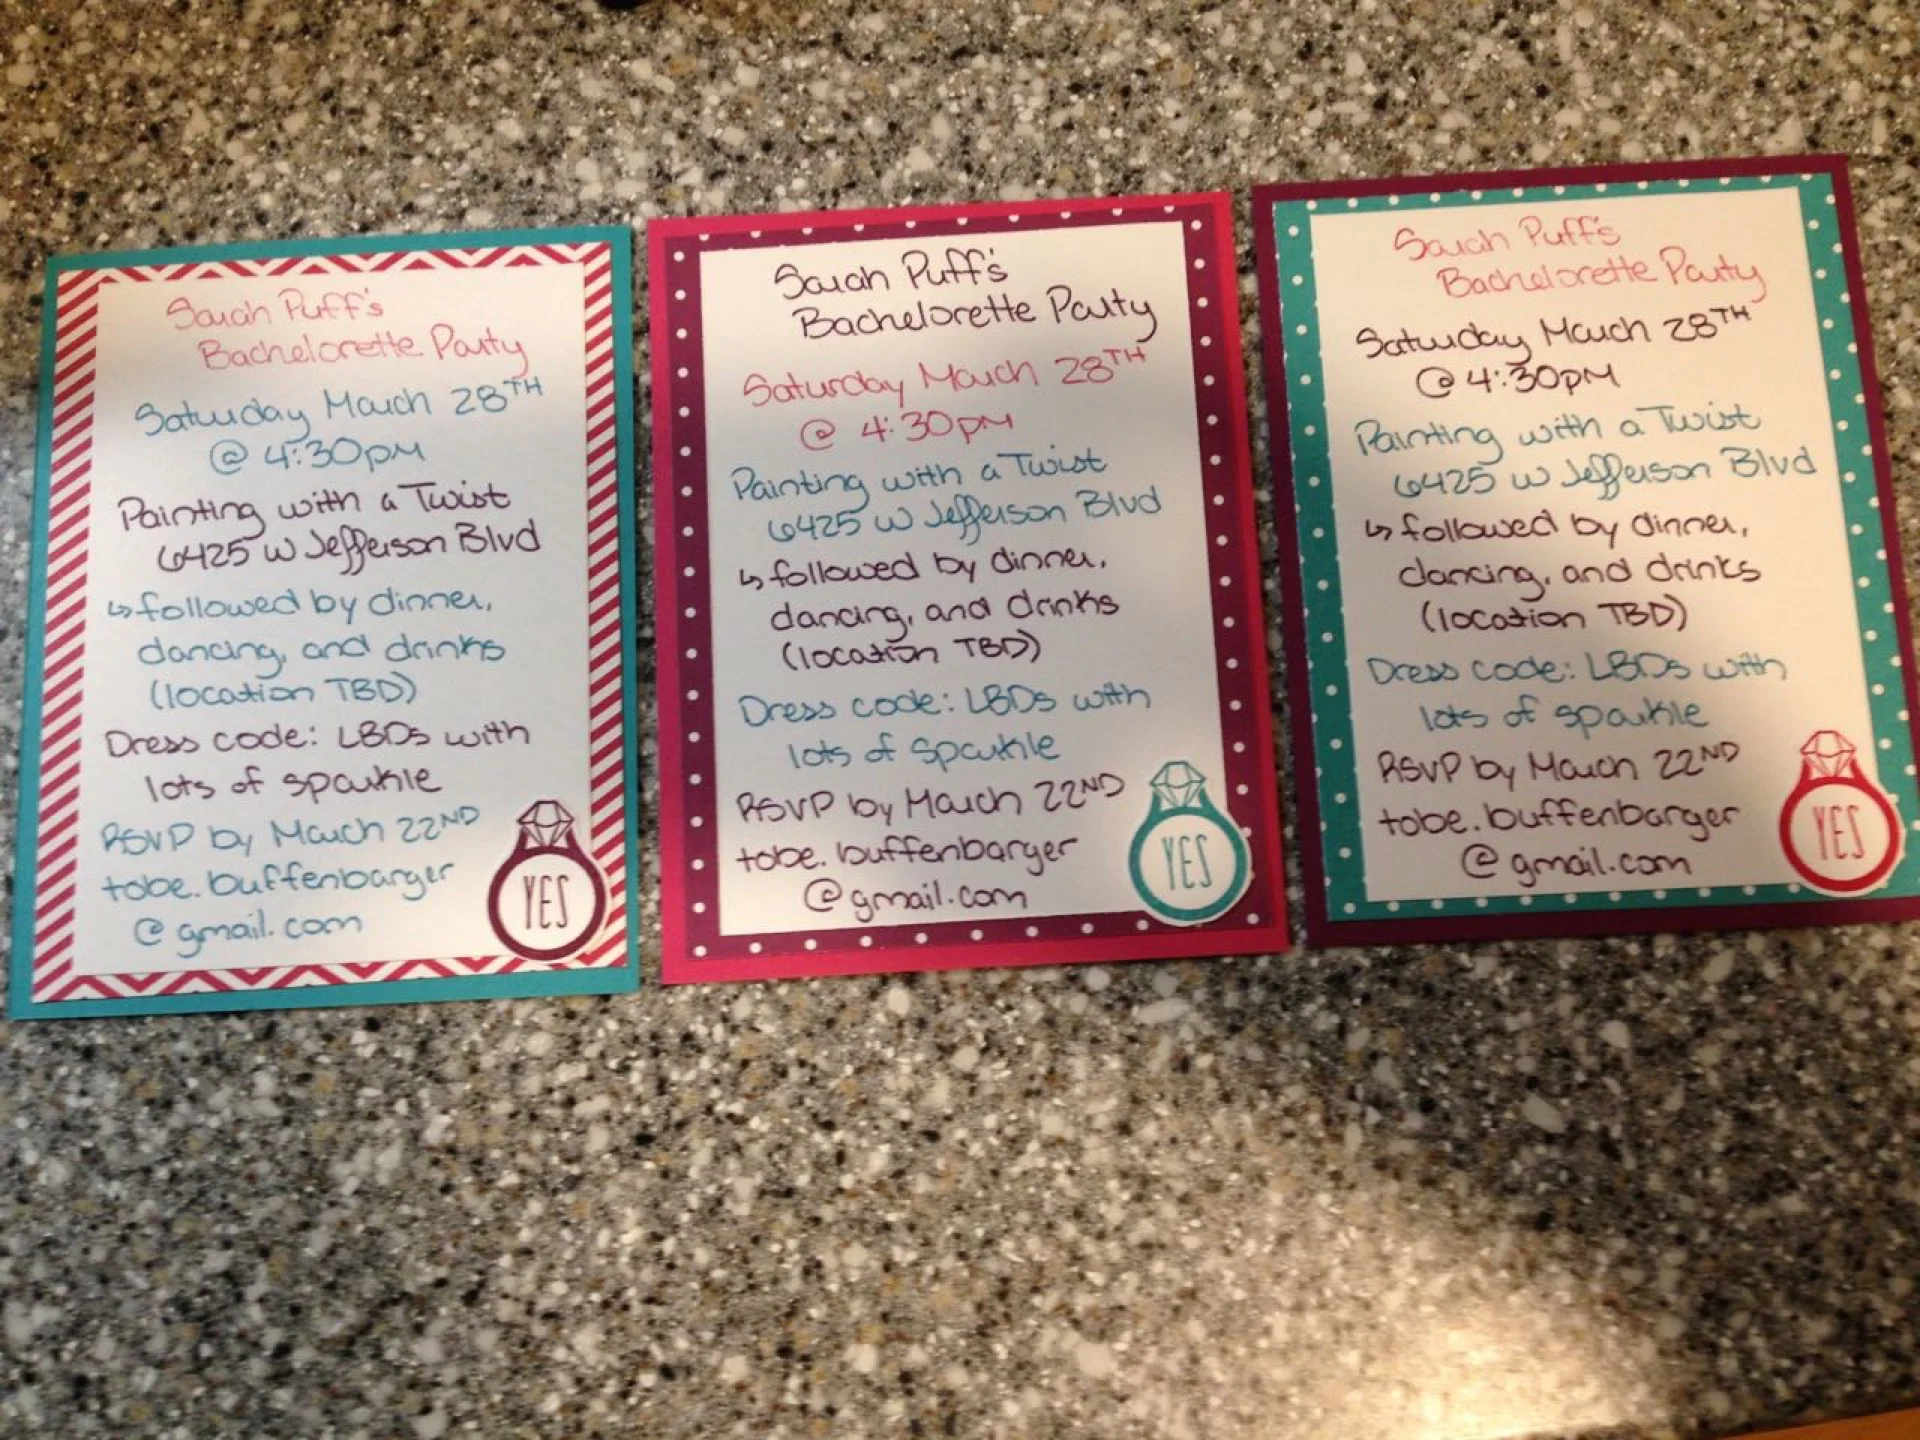 Sarah Puff's
Bachelorette Party
Saturday March 28TH
@ 4:30pm
Painting with a Twist
6425 W Jefferson Blvd
↳ followed by dinner,
dancing, and drinks
(location TBD)
Dress code: LBDs with
lots of sparkle
RSVP by March 22ND
tobe.buffenbarger
@gmail.com
YES
Sarah Puff's
Bachelorette Party
Saturday March 28TH
@ 4:30pm
Painting with a Twist
6425 W Jefferson Blvd
↳ followed by dinner,
dancing, and drinks
(location TBD)
Dress code: LBDs with
lots of sparkle
RSVP by March 22ND
tobe.buffenbarger
@gmail.com
YES
Sarah Puff's
Bachelorette Party
Saturday March 28TH
@ 4:30pm
Painting with a Twist
6425 W Jefferson Blvd
↳ followed by dinner,
dancing, and drinks
(location TBD)
Dress code: LBDs with
lots of sparkle
RSVP by March 22ND
tobe.buffenbarger
@gmail.com
YES